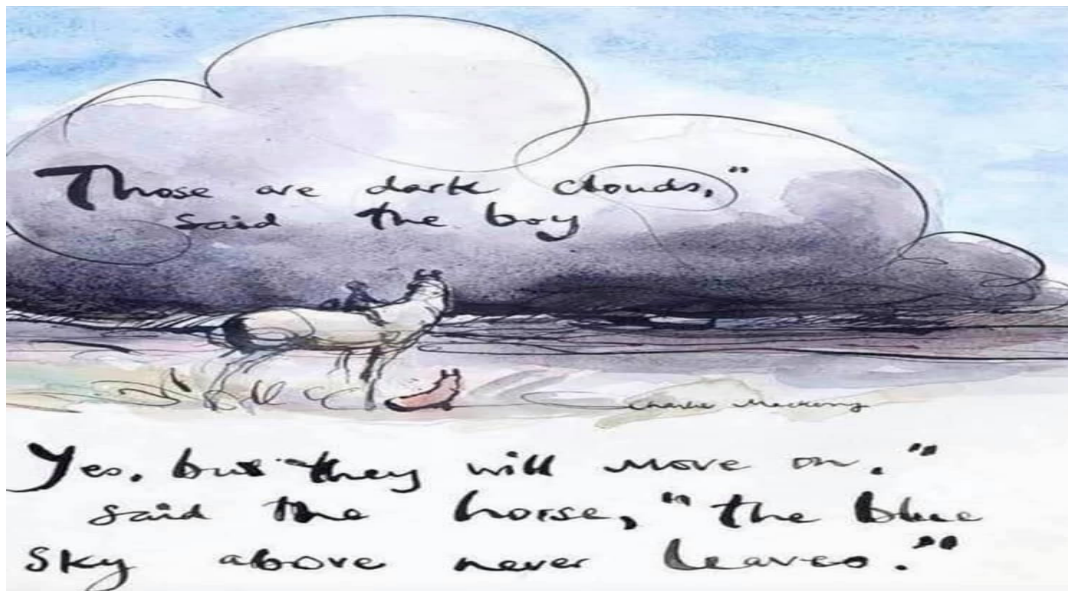 Those are dark clouds,"
said the boy
Charlie Mackesy
Yes, but they will move on."
said the horse, "the blue
sky above never leaves."